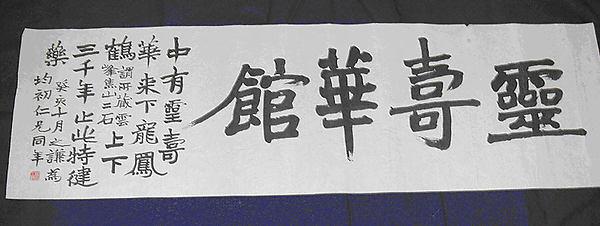 靈壽華館
中有靈壽
華来下龍鳳
鶴謂所藏雲
峯焦山二石上下
三千年止此特健
藥癸亥十月之謙為
均初仁兄同年